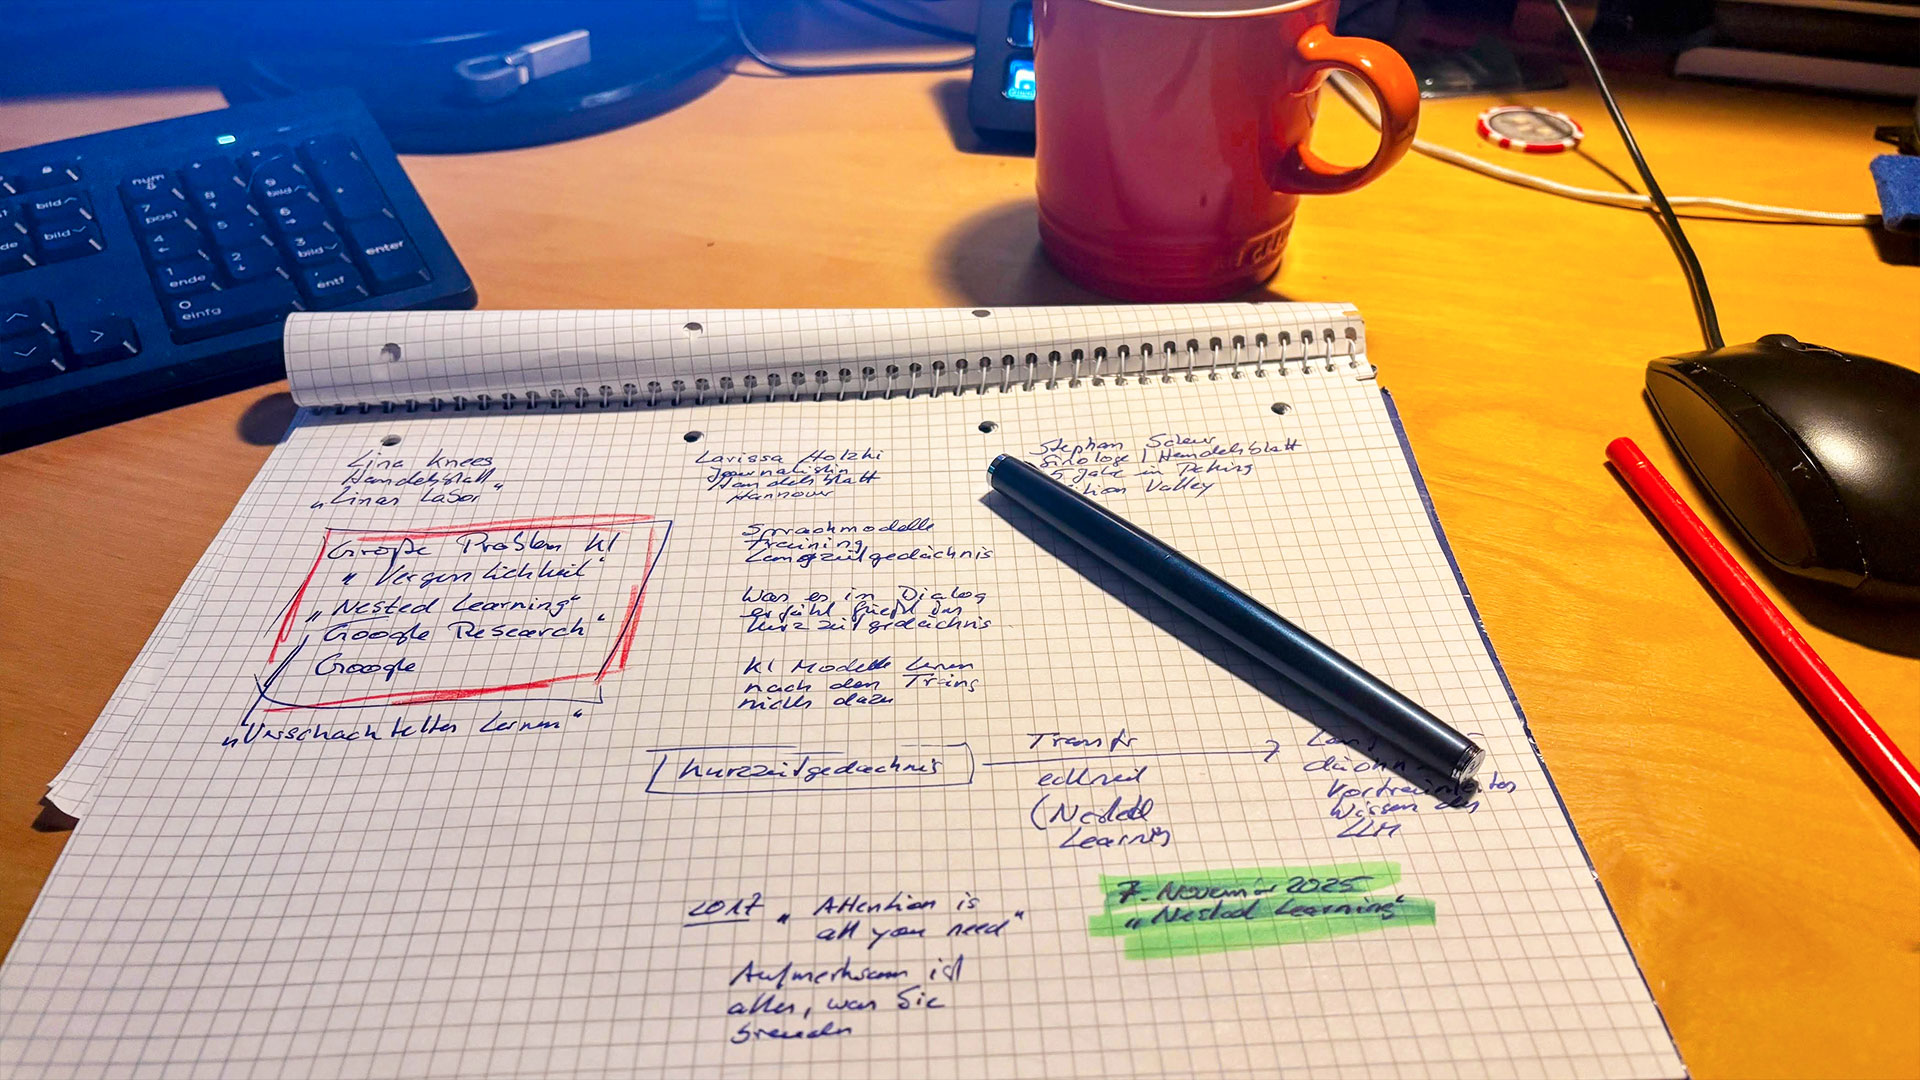 num
bild
bild
7
pos1
8
9
bild
+
4
5
6
1
ende
2
3
bild
enter
0
einfg
,
entf
Lina Knees
Handelsblatt
"Linas Labor"
Larissa Holzki
Journalistin
Handelsblatt
Hannover
Stephan
Sinologe | Handelsblatt
5 Jahre in Peking
Silicon Valley
Große Problem KI
"Vergesslichkeit"
"Nested Learning"
Google Research"
Google
"Verschachteltes Lernen"
Sprachmodelle
Training
Langzeitgedächnis
Was es im Dialog
erfährt fließt das
Kurzzeitgedächnis
KI Modelle lernen
nach den Traing
nichts dazu
Kurzzeitgedächnis
Transfer
echtzeit
(Nested
Learning
Vortrainiertes
Wissen des
LLM
2017 "Attention is
all you need"
Aufmerksam ist
alles, was Sie
brauchen
7. November 2025
"Nested Learning"